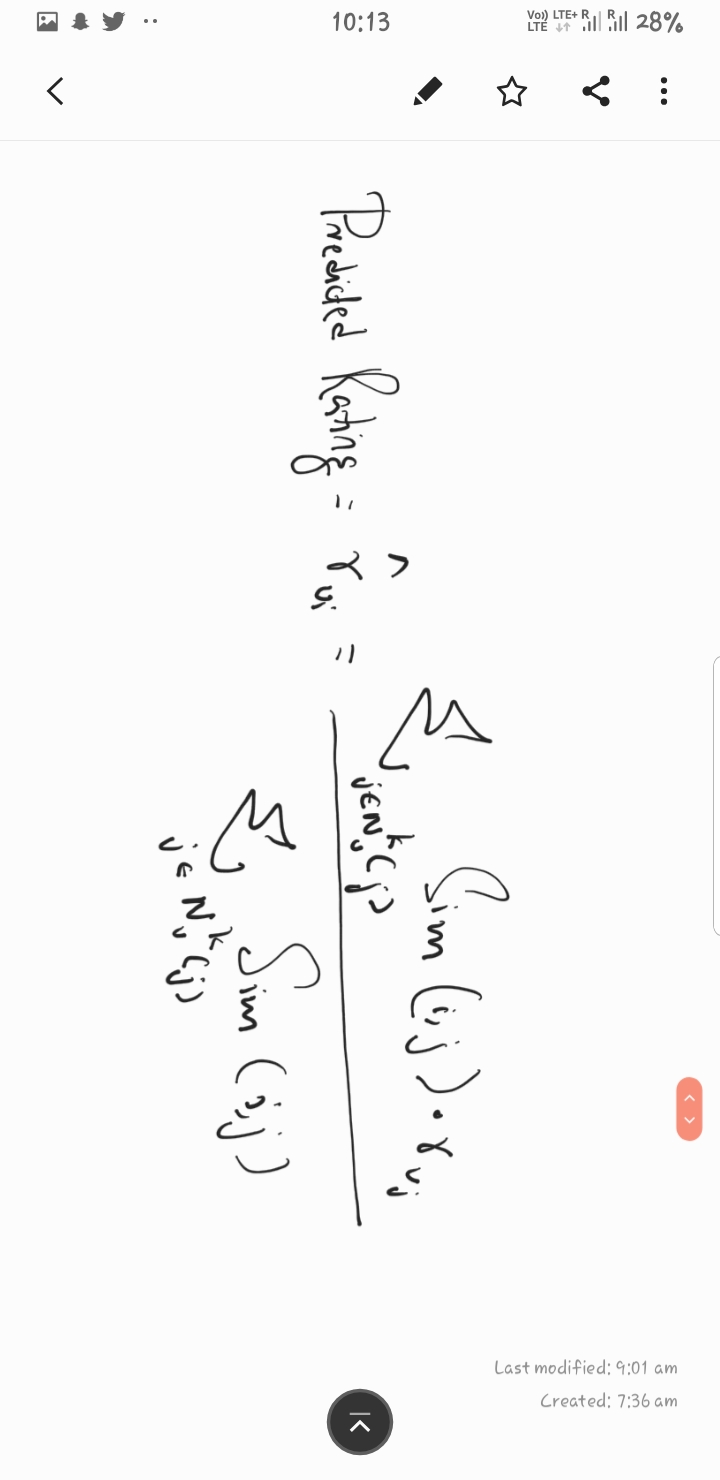 10:13
Vo)) LTE LTE+ R R 28%
Predicted Rating = r̂ui =
Σ j∈Nu^k(j) Sim (i,j) · ruj
Σ j∈Nu^k(j) Sim (i,j)
Last modified: 9:01 am
Created: 7:36 am